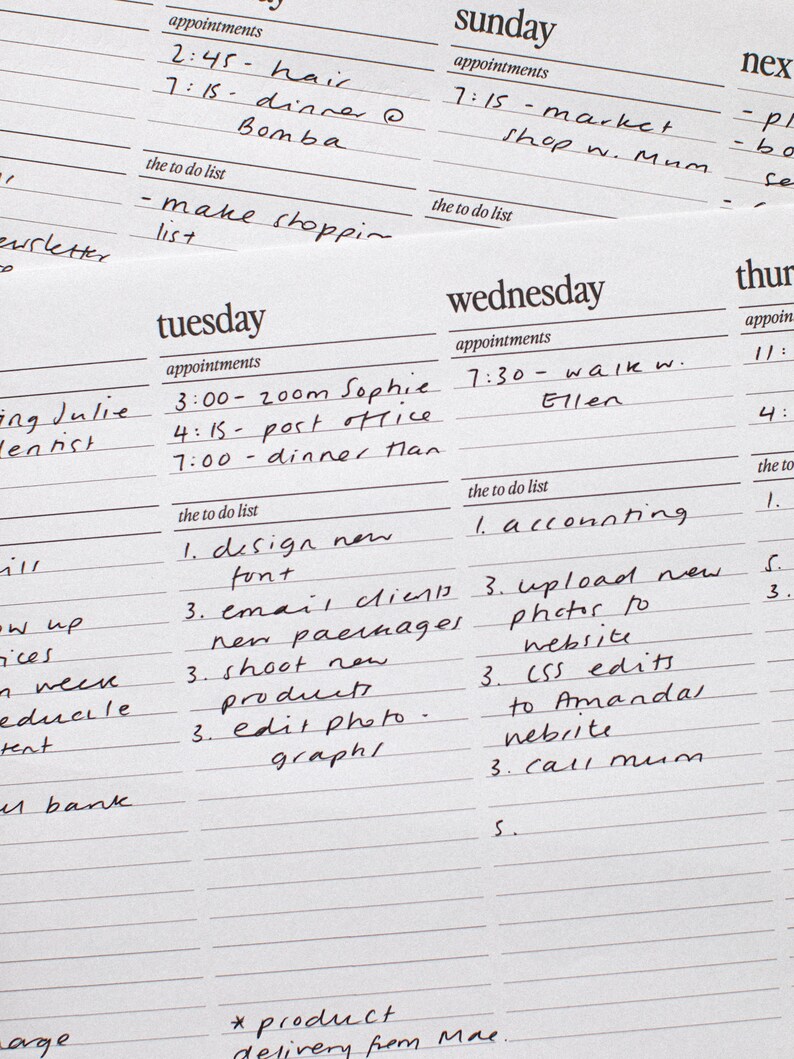 appointments
2:45 - hair
7:15 - dinner @
Bomba
the to do list
- make shoppin
list
sunday
appointments
7:15 - market
shop w. Mum
the to do list
nex
- pl
- bo
se
ewsletter
ing Julie
dentist
ill
ow up
ices
n week
educule
tent
bank
arge
tuesday
appointments
3:00 - zoom Sophie
4:15 - post office
7:00 - dinner Han
the to do list
1. design new
font
3. email clients
new packages
3. shoot new
products
3. edit photo -
graphs
* product
delivery from Mae.
wednesday
appointments
7:30 - walk w.
Ellen
the to do list
1. accounting
3. upload new
photos to
website
3. CSS edits
to Amandas
website
3. call mum
5.
thur
appoin
11:
4:
the to
1.
5.
3.